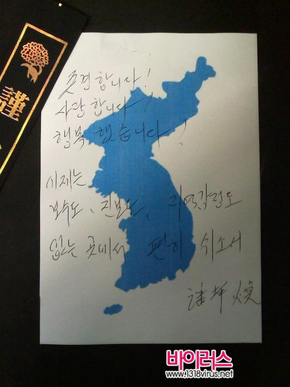 謹
존경합니다!
사랑합니다!
행복했습니다!
이제는
보수도, 진보도, 지역갈등도
없는 곳에서 편히 쉬소서
바이러스
www.1318virus.net